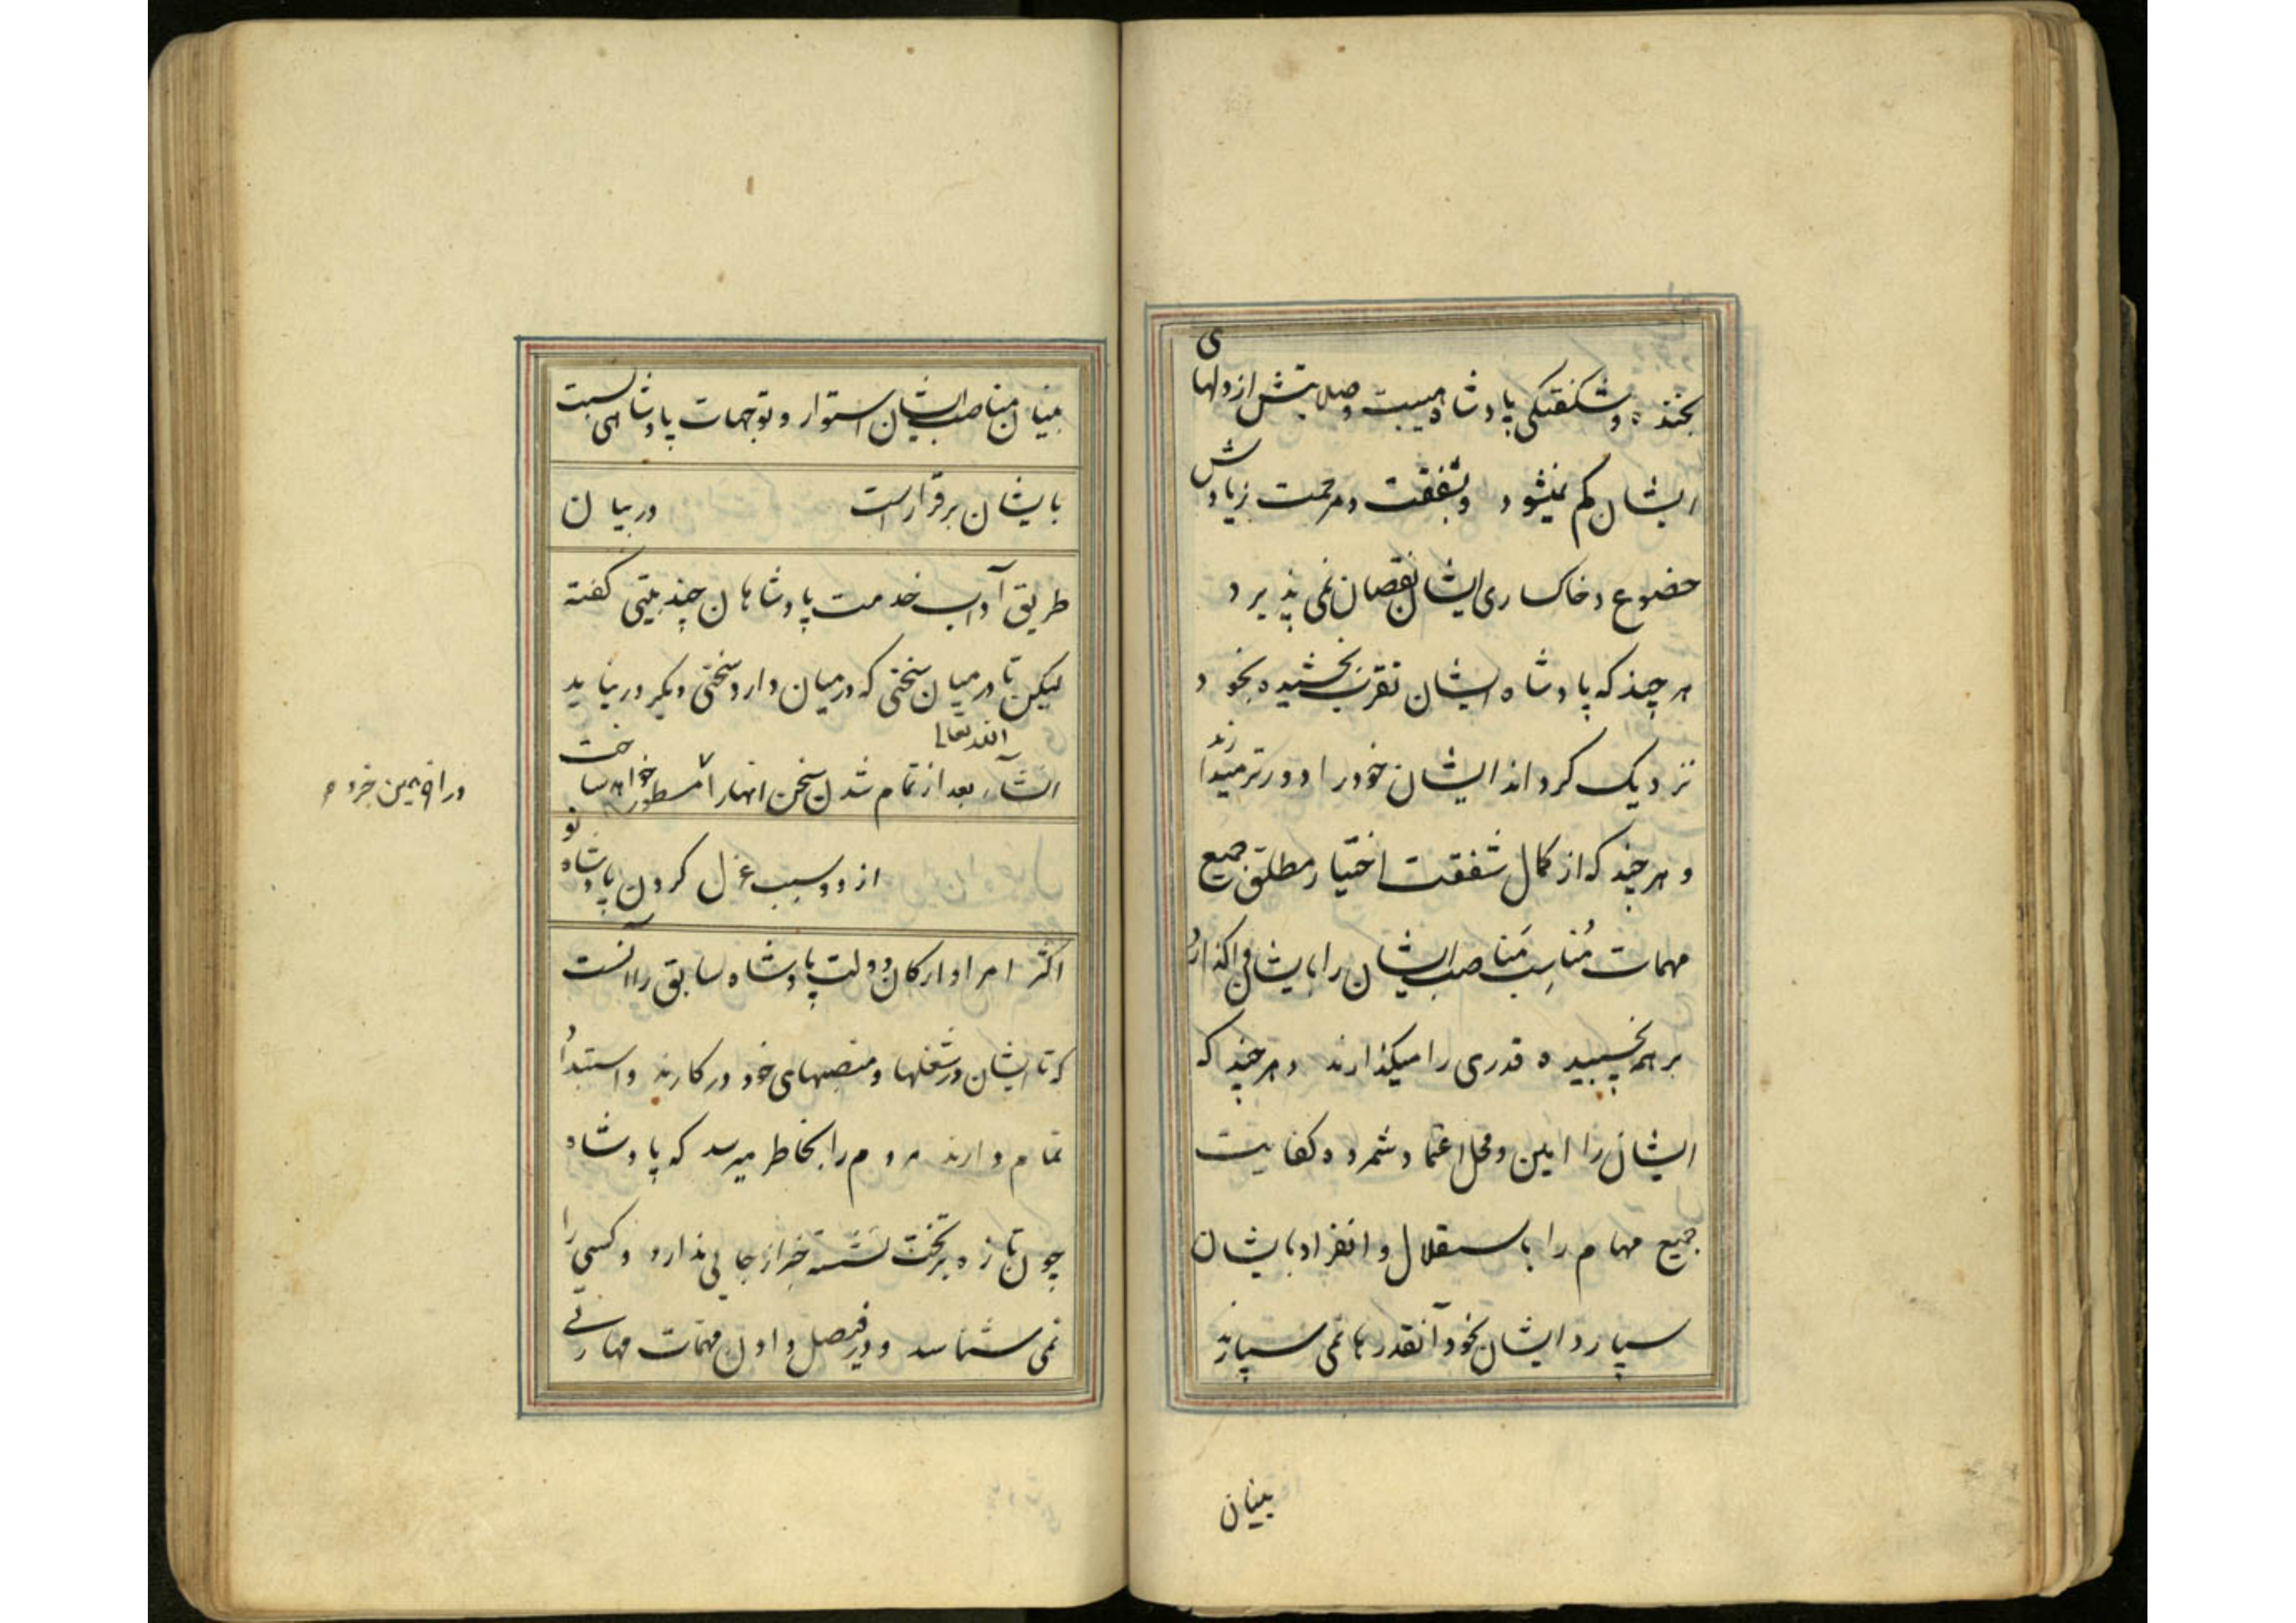 بخنده و شکفتکی پادشاه هیبت و صلابتش از دلهای
ایشان کم نمیشود و بشفقت و مرحمت زیادش
خضوع و خاکساری ایشان نقصان نمی پذیرد
هر چند که پادشاه ایشان تقرب بخشیده بخود
نزدیک کرداند ایشان خود را دورتر میدارند
و هر چند که از کمال شفقت اختیار مطلق جمیع
مهمات مُناسِب مَناصب ایشان را بایشان واکذارد
بر هم چسپیده قدری را میکذارند و هر چند که
ایشان را امین و محل اعتماد شمرده کفایت
جمیع مهام را باستقلال و انفراد بایشان
سپارد ایشان بخود آنقدرها نمی سپارند
بنیان
بنیان مناصب ایشان استوار و توجهات پادشاهی نسبت
بایشان برقرار است در بیان
طریق آداب خدمت پادشاهان چند بیتی کفته
لیکن تا در میان سخنی که در میان دارد سخنی دیکر در نیاید
انشاء الله تعالی بعد از تمام شدن سخن انها را مسطور خواهد ساخت
از دو سبب عزل کردن پادشاه نو
اکثر امرا و ارکان دولت پادشاه سابق را آنست
که تا ایشان در شغلها و منصبهای خود در کارند و استبداد
تمام دارند مردم را بخاطر میرسد که پادشاه
چون تازه بر تخت نشسته خبر از جایی ندارد و کسی را
نمی شناسد و در فیصل دادن مهمات مهارتی
در اواخر همین جزو